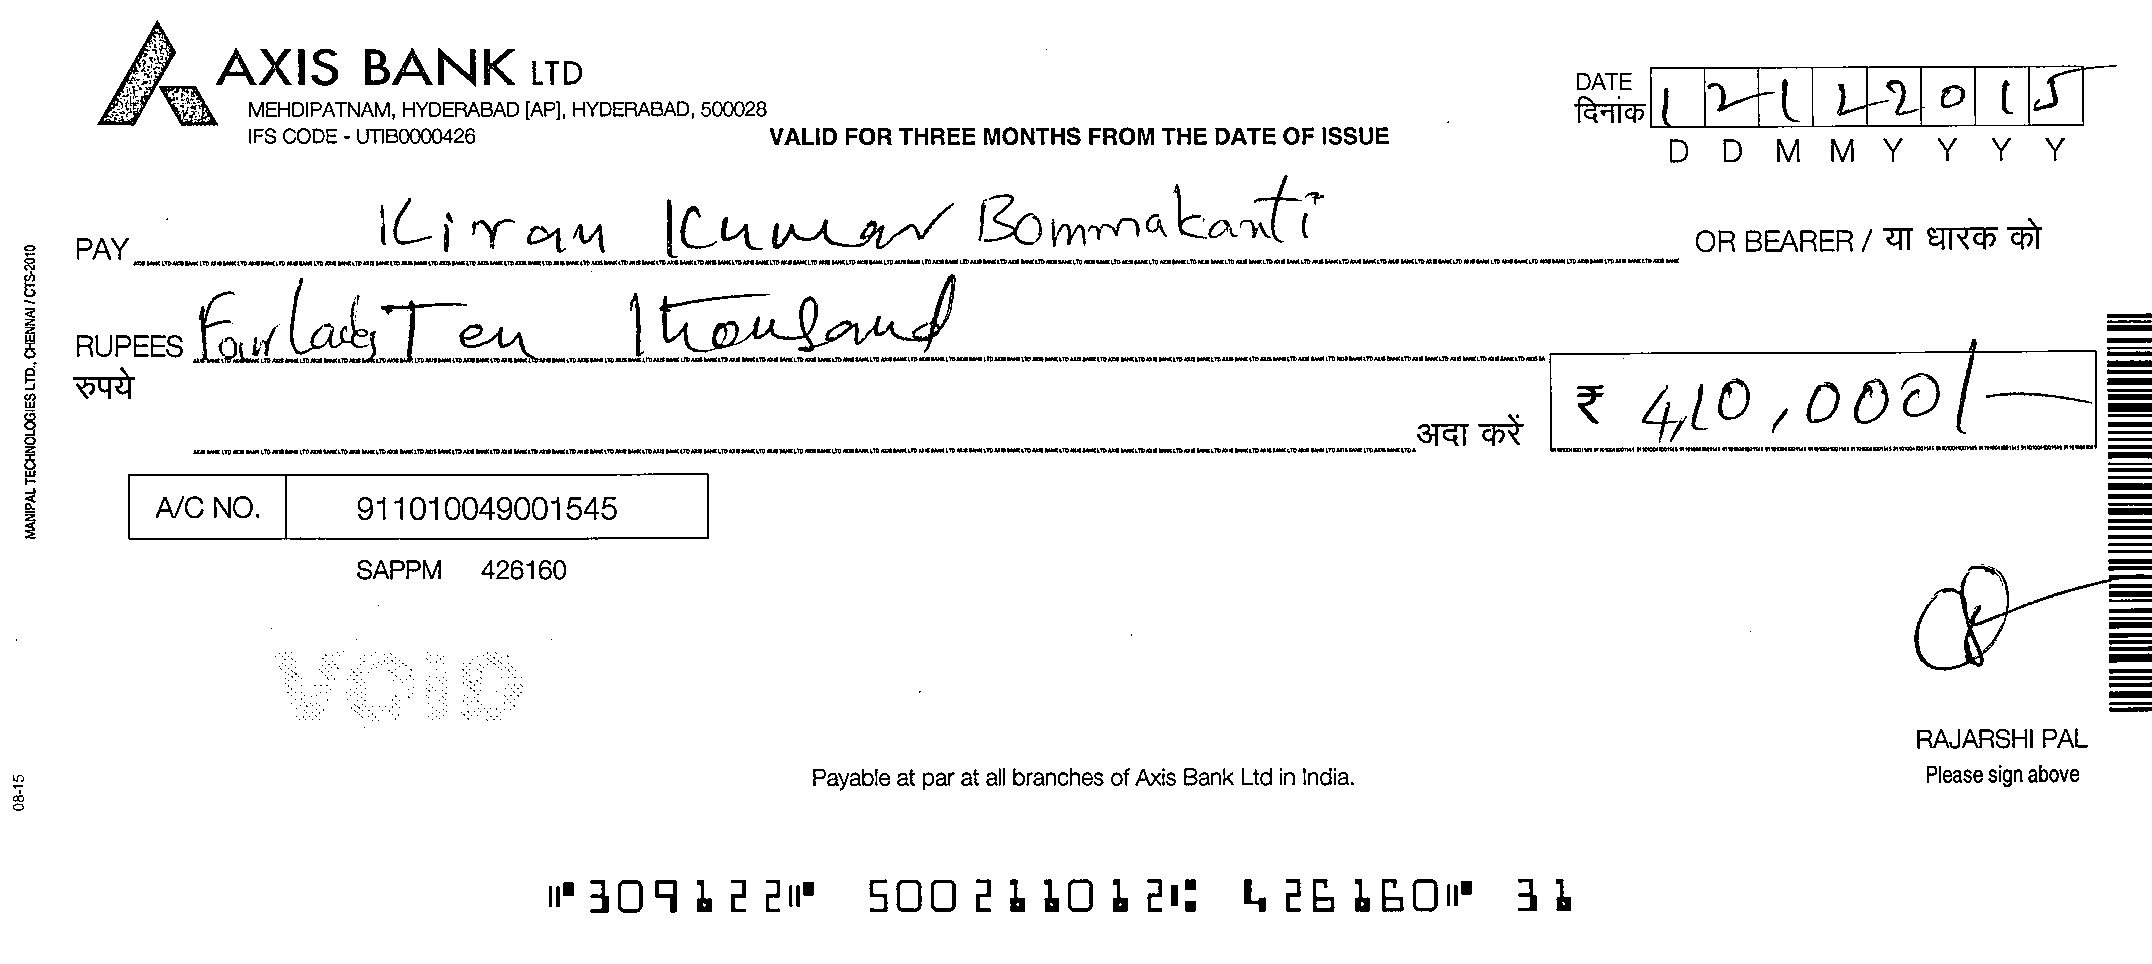 AXIS BANK LTD
MEHDIPATNAM, HYDERABAD [AP], HYDERABAD, 500028
IFS CODE - UTIB0000426
VALID FOR THREE MONTHS FROM THE DATE OF ISSUE
DATE
दिनांक 1 2 1 2 2 0 1 5
D D M M Y Y Y Y
PAY Kiran Kumar Bommakanti OR BEARER / या धारक को
RUPEES Four lacks Ten Thousand
रुपये
अदा करें ₹ 4,10,000/-
A/C NO. 911010049001545
SAPPM 426160
VOID
RAJARSHI PAL
Please sign above
Payable at par at all branches of Axis Bank Ltd in India.
MANIPAL TECHNOLOGIES LTD., CHENNAI / CTS-2010
08-15
⑈309122⑈ 500211012⑆ 426160⑈ 31